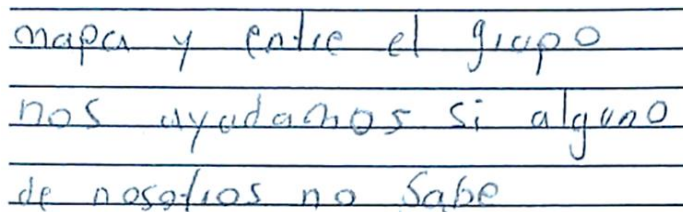 mapa y entre el grupo
nos ayudamos si alguno
de nosotros no sabe